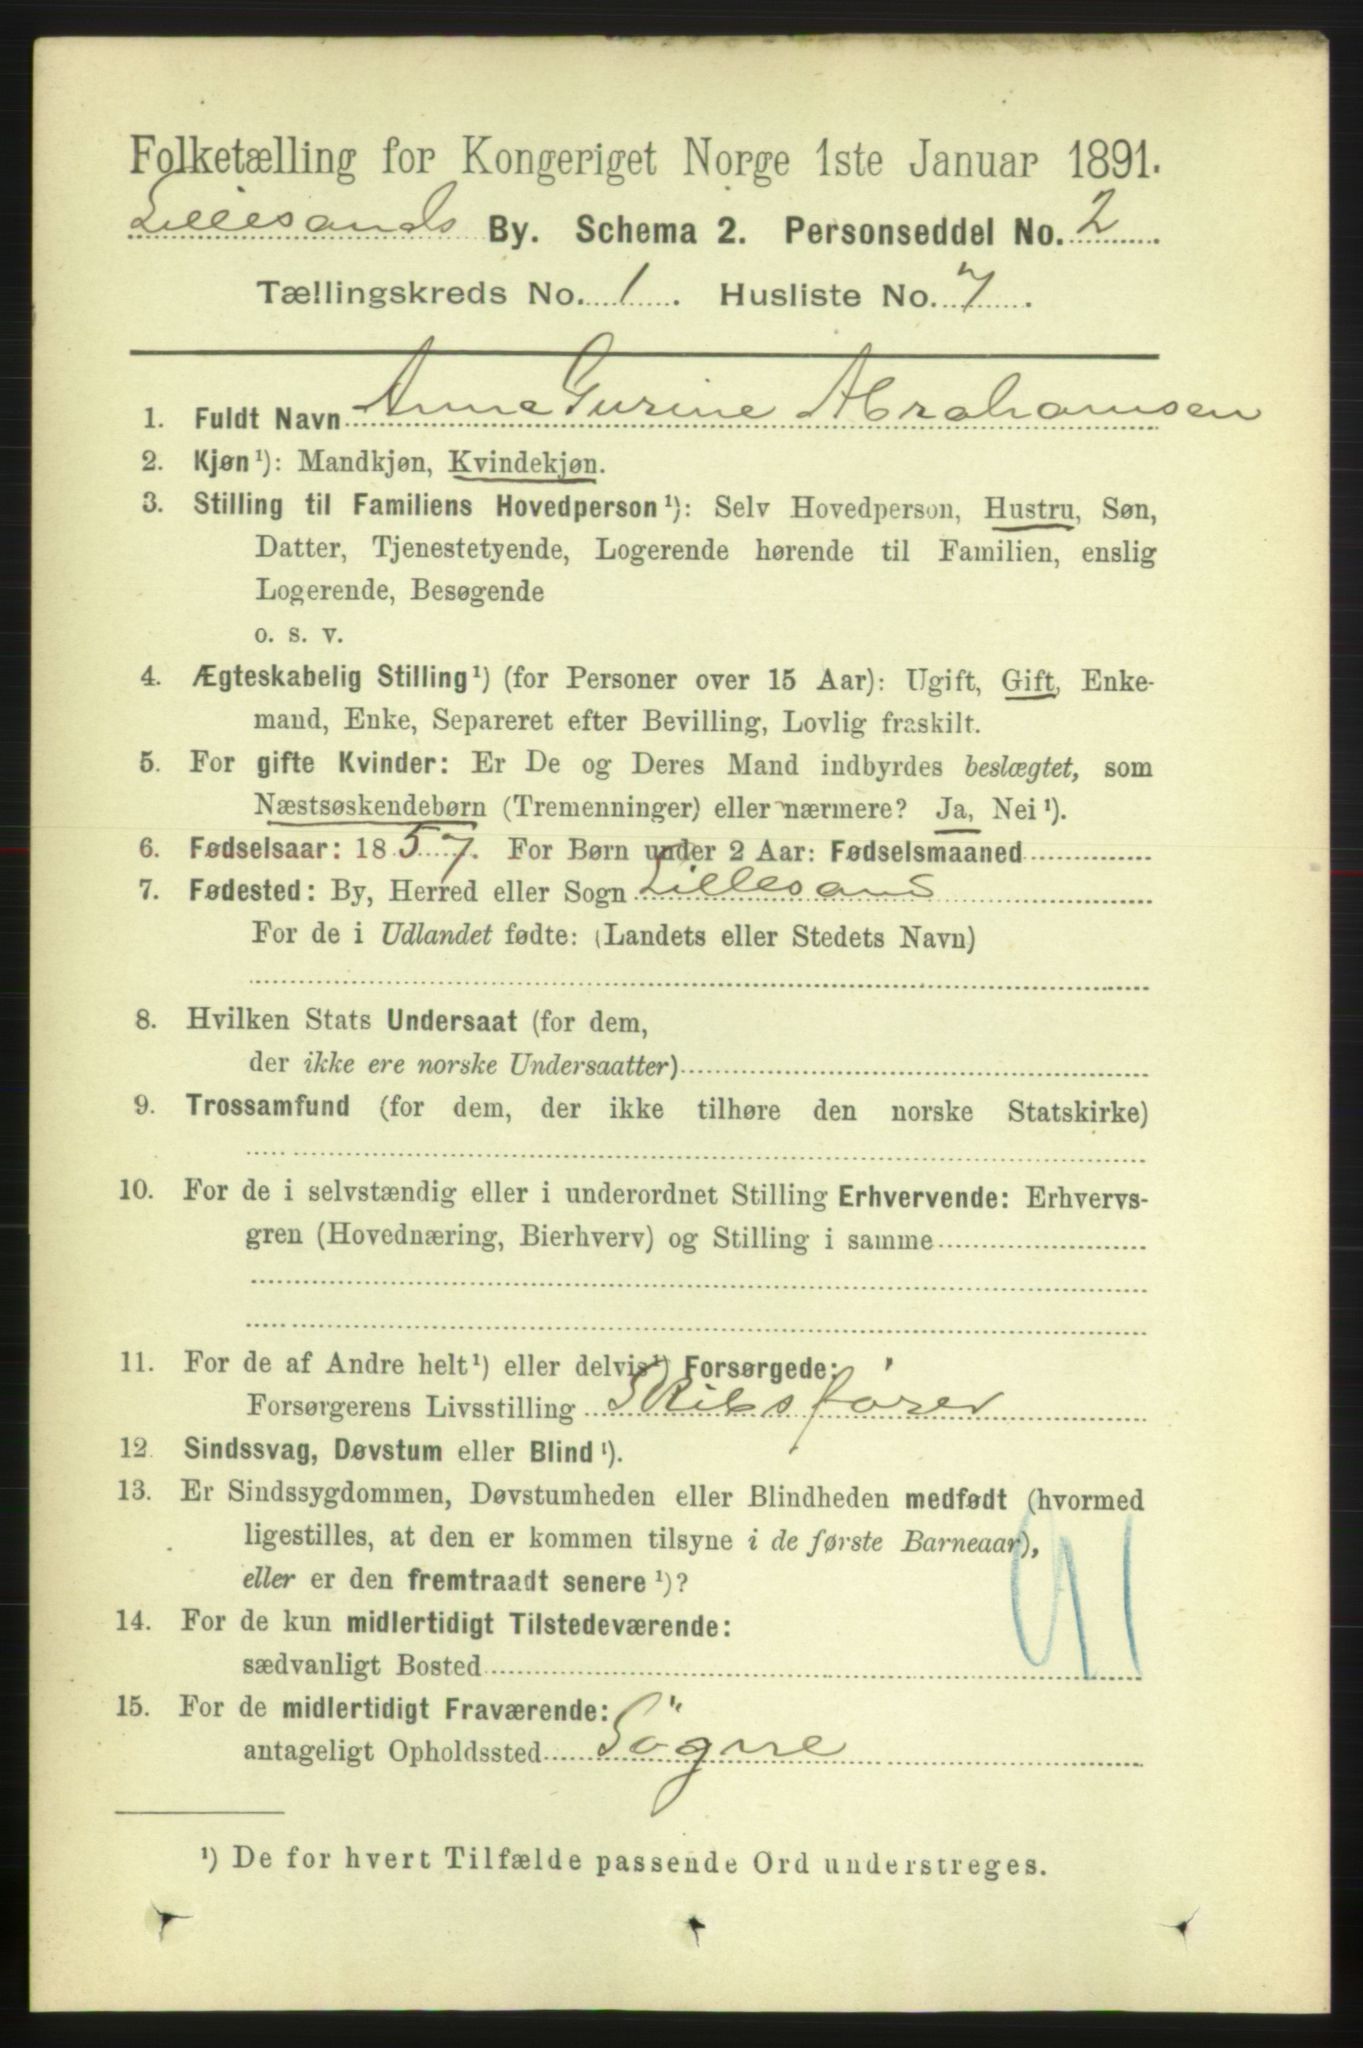 Folketælling for Kongeriget Norge 1ste Januar 1891.
Lillesands By. Schema 2. Personseddel No. 2
Tællingskreds No. 1. Husliste No. 7.
1. Fuldt Navn Anne Gurine Abrahamsen
2. Kjøn ¹): Mandkjøn, Kvindekjøn.
3. Stilling til Familiens Hovedperson ¹): Selv Hovedperson, Hustru, Søn,
Datter, Tjenestetyende, Logerende hørende til Familien, enslig
Logerende, Besøgende
o. s. v.
4. Ægteskabelig Stilling ¹) (for Personer over 15 Aar): Ugift, Gift, Enke-
mand, Enke, Separeret efter Bevilling, Lovlig fraskilt.
5. For gifte Kvinder: Er De og Deres Mand indbyrdes beslægtet, som
Næstsøskendebørn (Tremenninger) eller nærmere? Ja, Nei ¹).
6. Fødselsaar: 1857. For Børn under 2 Aar: Fødselsmaaned
7. Fødested: By, Herred eller Sogn Lillesand
For de i Udlandet fødte: (Landets eller Stedets Navn)
8. Hvilken Stats Undersaat (for dem,
der ikke ere norske Undersaatter)
9. Trossamfund (for dem, der ikke tilhøre den norske Statskirke)
10. For de i selvstændig eller i underordnet Stilling Erhvervende: Erhvervs-
gren (Hovednæring, Bierhverv) og Stilling i samme
11. For de af Andre helt ¹) eller delvis ¹) Forsørgede:
Forsørgerens Livsstilling Skibsfører
12. Sindssvag, Døvstum eller Blind ¹).
13. Er Sindssygdommen, Døvstumheden eller Blindheden medfødt (hvormed
ligestilles, at den er kommen tilsyne i de første Barneaar),
eller er den fremtraadt senere ¹)?
91
14. For de kun midlertidigt Tilstedeværende:
sædvanligt Bosted
15. For de midlertidigt Fraværende:
antageligt Opholdssted Sögne
¹) De for hvert Tilfælde passende Ord understreges.